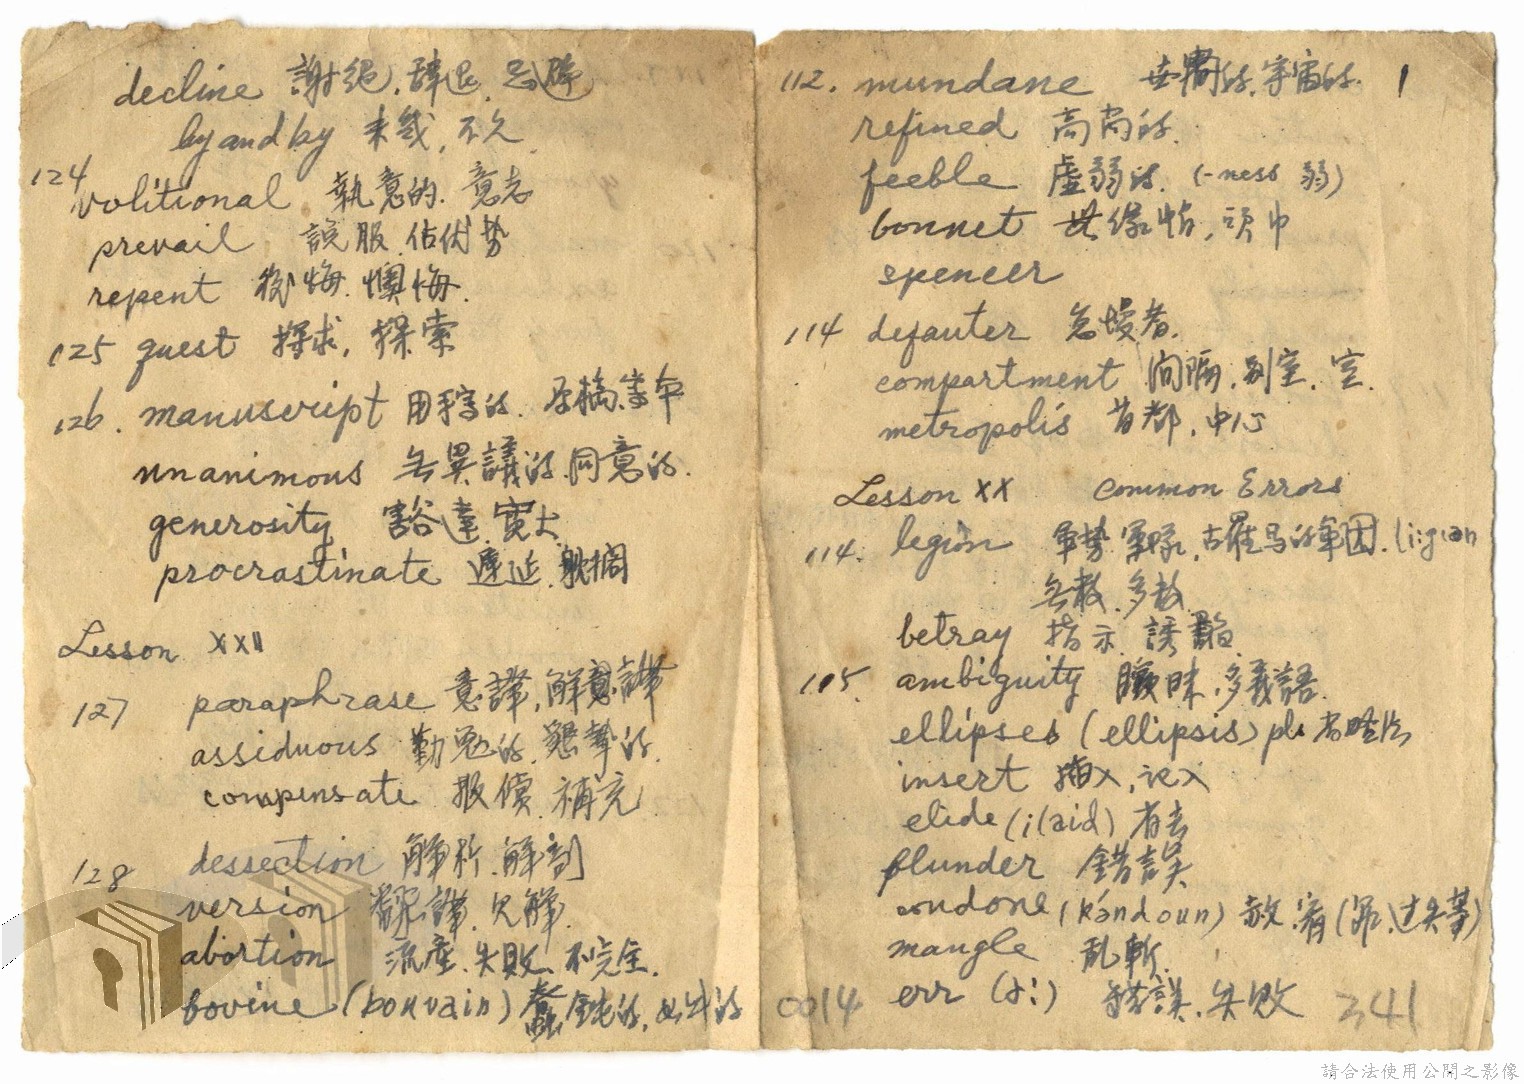 decline 謝絕, 辞退, 忌避
by and by 未幾, 不久,
124
volitional 執意的. 意志
prevail 説服. 佔优势
repent 後悔. 懊悔.
125 quest 探求, 探索
126. manuscript 用手寫的. 原稿.
unanimous 無異議的. 同意的.
generosity 豁達. 寛大
procrastinate 遷延. 躭擱
Lesson XXII
127 paraphrase 意譯, 解意
assiduous 勤勉的. 懇摯的.
compensate 報償. 補充
128 dessection 解析. 解剖
version 翻譯. 見解.
abortion 流產. 失敗. 不完全.
bovine (bouvain) 蠢鈍的, 如牛的
112. mundane 世間的, 宇宙的. 1
refined 高尚的.
feeble 虛弱的. (-ness 弱)
bonnet 無緣帽, 頭巾
spencer
114 defauter 怠慢者.
compartment 间隔, 別室. 室.
metropolis 首都, 中心
Lesson XX Common Errors
114. legion 軍势. 軍隊, 古羅馬的軍团. li:gian
無数. 多数
betray 指示. 誘陷.
115. ambiguity 曖昧, 多義語.
ellipses (ellipsis) pl. 省略法
insert 插入, 记入
elide (i(aid) 省去
blunder 錯誤
condone (kándoun) 赦宥 (罪, 过失等)
mangle 亂斬.
err (ə:) 錯誤. 失敗
0014
341
請合法使用公開之影像